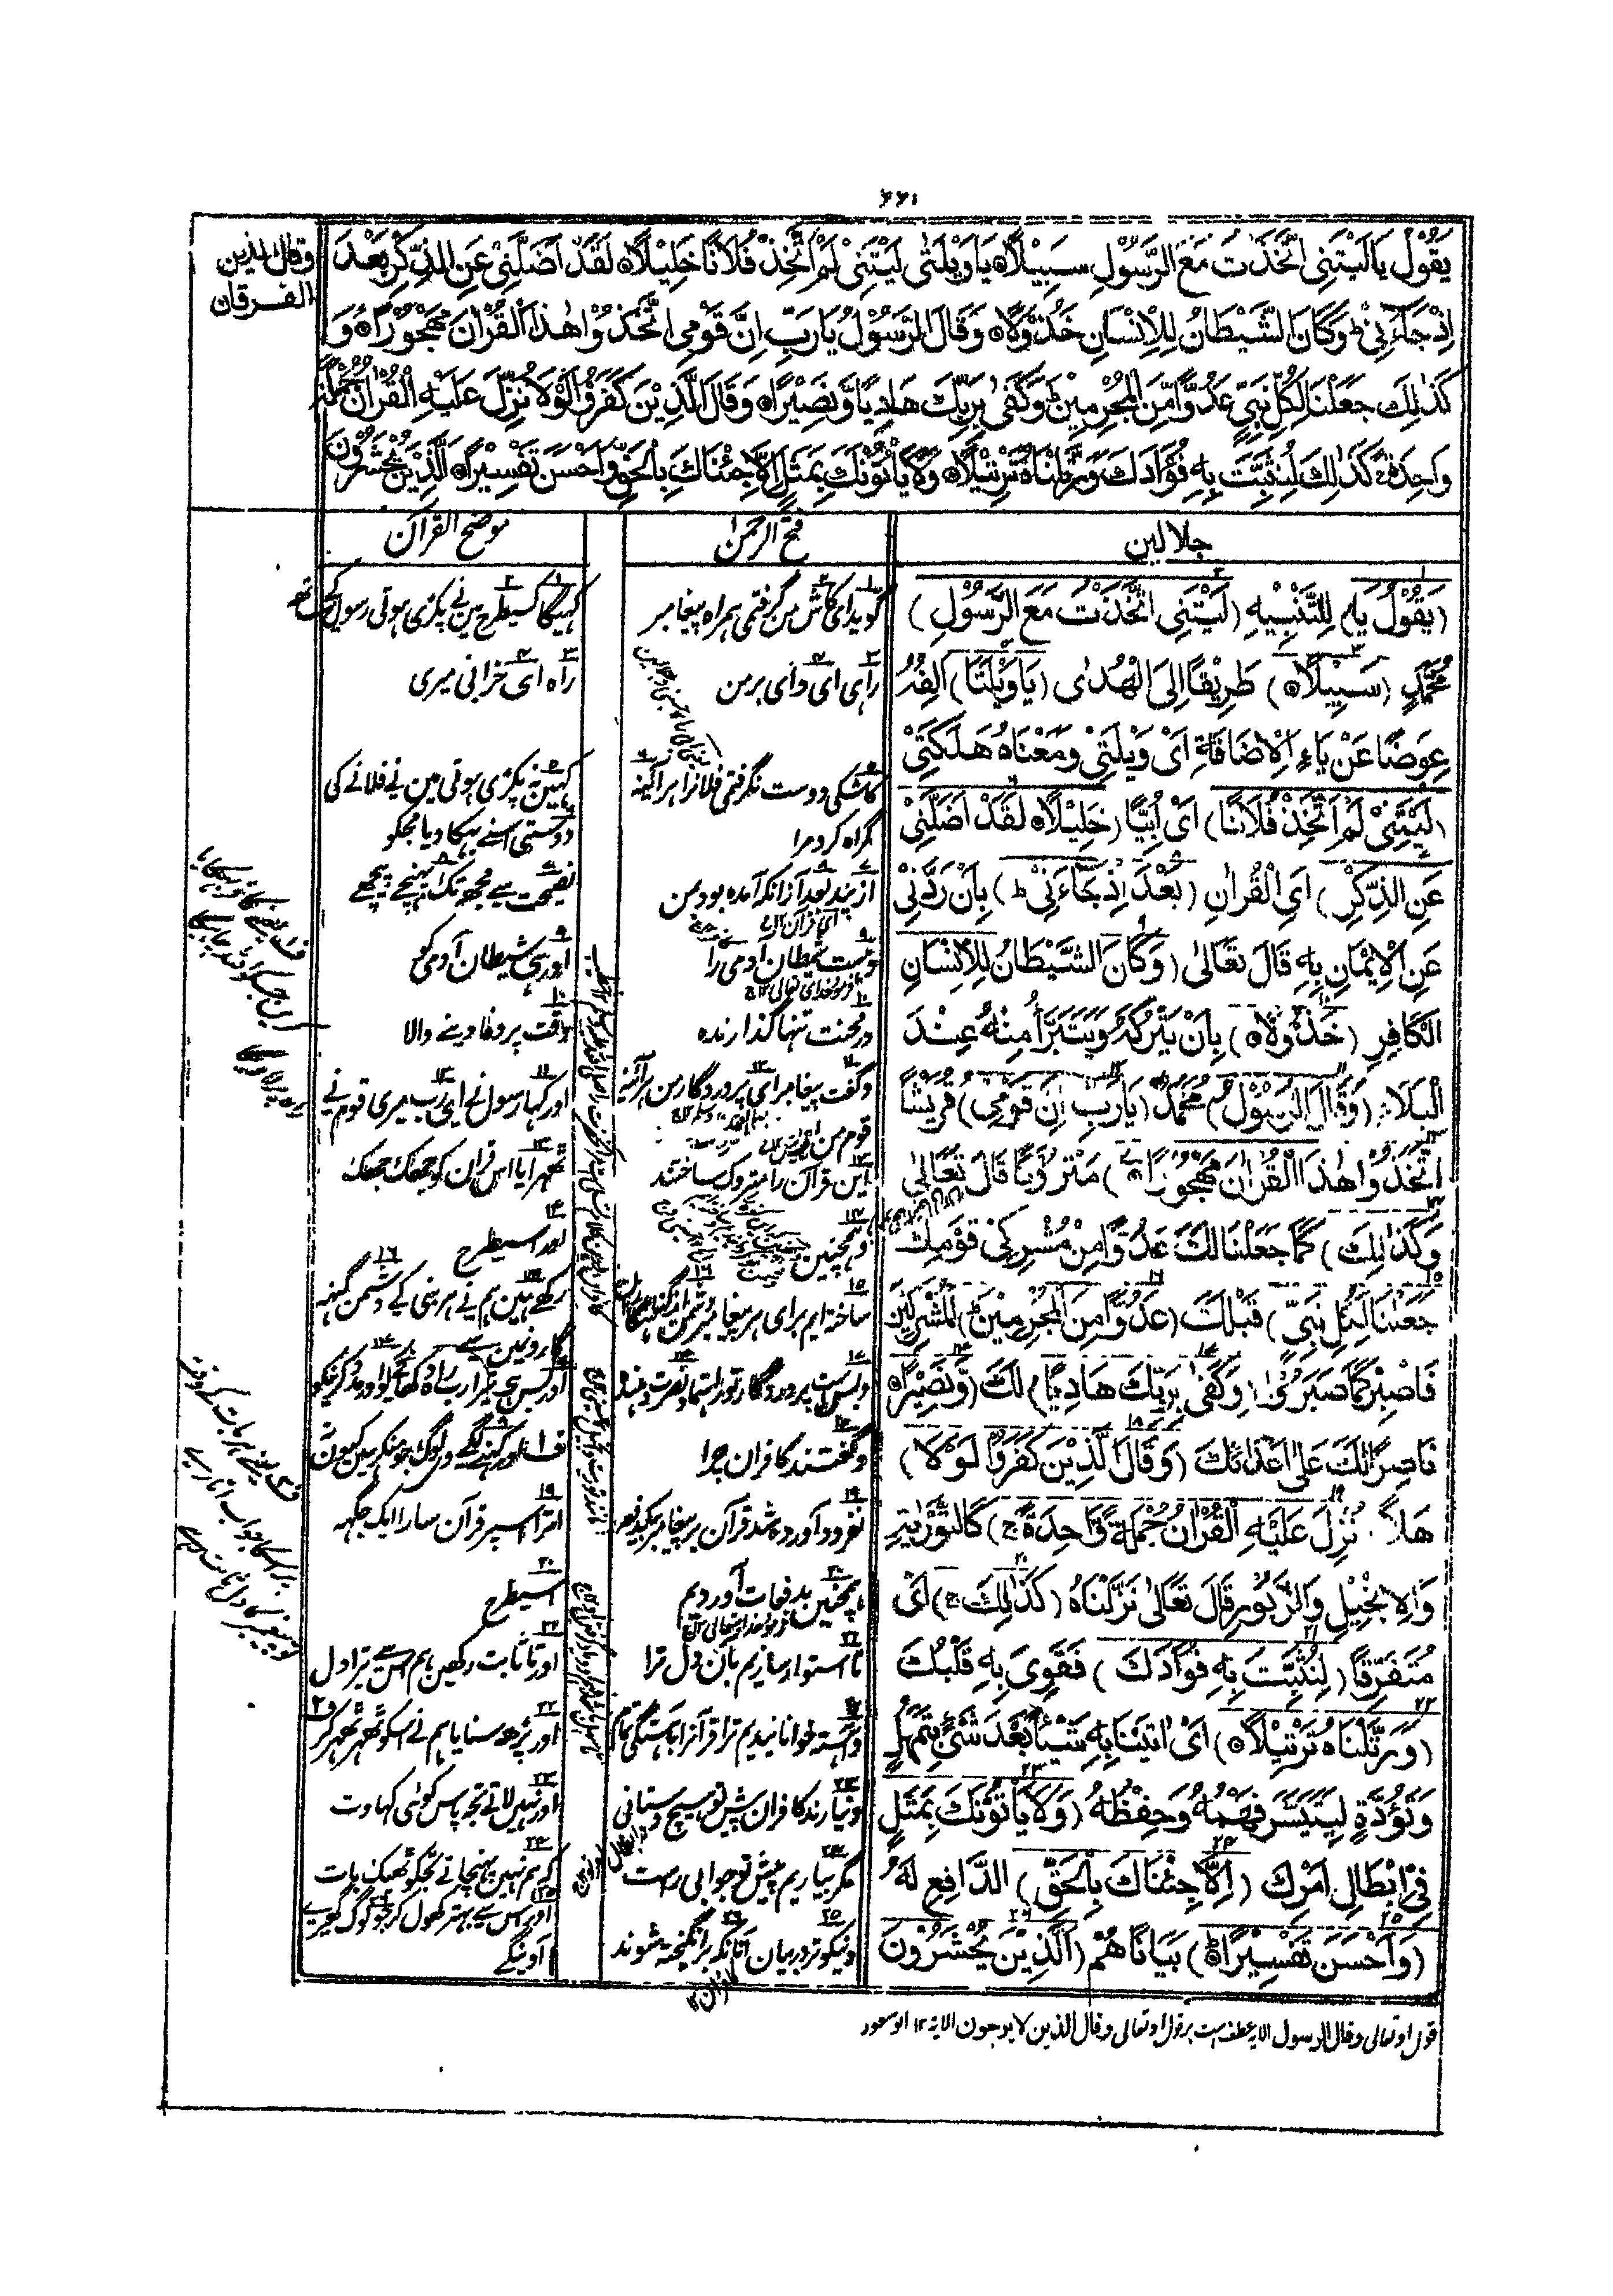 ۴۴۰
وقال الذين
الفرقان
يَقُوْلُ يَالَيْتَنِى اتَّخَذْتُ مَعَ الرَّسُوْلِ سَبِيْلًا۝ يَاوَيْلَتٰى لَيْتَنِىْ لَمْ اَتَّخِذْ فُلَانًا خَلِيْلًا۝ لَقَدْ اَضَلَّنِىْ عَنِ الذِّكْرِ بَعْدَ
اِذْ جَآءَنِىْ ط وَكَانَ الشَّيْطَانُ لِلْاِنْسَانِ خَذُوْلًا۝ وَقَالَ الرَّسُوْلُ يَارَبِّ اِنَّ قَوْمِى اتَّخَذُوْا هٰذَا الْقُرْاٰنَ مَهْجُوْرًا۝ وَ
كَذٰلِكَ جَعَلْنَا لِكُلِّ نَبِىٍّ عَدُوًّا مِّنَ الْمُجْرِمِيْنَ ط وَكَفٰى بِرَبِّكَ هَادِيًا وَّنَصِيْرًا۝ وَقَالَ الَّذِيْنَ كَفَرُوْا لَوْلَا نُزِّلَ عَلَيْهِ الْقُرْاٰنُ جُمْلَةً
وَاحِدَةً كَذٰلِكَ لِنُثَبِّتَ بِهٖ فُؤَادَكَ وَرَتَّلْنَاهُ تَرْتِيْلًا۝ وَلَا يَاْتُوْنَكَ بِمَثَلٍ اِلَّا جِئْنَاكَ بِالْحَقِّ وَاَحْسَنَ تَفْسِيْرًا۝ اَلَّذِيْنَ يُحْشَرُوْنَ
جلالين
(يَقُوْلُ يٰا) لِلتَّنْبِيْهِ (لَيْتَنِى اتَّخَذْتُ مَعَ الرَّسُوْلِ)
مُحَمَّدٍ (سَبِيْلًا۝) طَرِيْقًا اِلَى الْهُدٰى (يَاوَيْلَتَا) اَلِفُهُ
عِوَضًا عَنْ يَاءِ الْاِضَافَةِ اَىْ وَيْلَتِىْ وَمَعْنَاهُ هَلَكَتِىْ
(لَيْتَنِىْ لَمْ اَتَّخِذْ فُلَانًا) اَىْ اُبَيًّا (خَلِيْلًا۝ لَقَدْ اَضَلَّنِىْ
عَنِ الذِّكْرِ) اَىِ الْقُرْاٰنِ (بَعْدَ اِذْ جَآءَنِىْ ط) بِاَنْ رَدَّنِىْ
عَنِ الْاِيْمَانِ بِهٖ قَالَ تَعَالٰى (وَكَانَ الشَّيْطَانُ لِلْاِنْسَانِ
الْكَافِرِ (خَذُوْلًا۝) بِاَنْ يَتْرُكَهُ وَيَتَبَرَّاَ مِنْهُ عِنْدَ
الْبَلَاءِ (وَقَالَ الرَّسُوْلُ) مُحَمَّدٌ (يَارَبِّ اِنَّ قَوْمِى) قُرَيْشًا
اتَّخَذُوْا هٰذَا الْقُرْاٰنَ مَهْجُوْرًا۝) مَتْرُوْكًا قَالَ تَعَالٰى
وَكَذٰلِكَ) كَمَا جَعَلْنَا لَكَ عَدُوًّا مِنْ مُشْرِكِىْ قَوْمِكَ
جَعَلْنَا لِكُلِّ نَبِىٍّ) قَبْلَكَ (عَدُوًّا مِنَ الْمُجْرِمِيْنَ ط) الْمُشْرِكِيْنَ
فَاصْبِرْ كَمَا صَبَرُوْا (وَكَفٰى بِرَبِّكَ هَادِيًا) لَكَ (وَّنَصِيْرًا۝
نَاصِرًا لَكَ عَلٰى اَعْدَائِكَ (وَقَالَ الَّذِيْنَ كَفَرُوْا لَوْلَا)
هَلَّا (نُزِّلَ عَلَيْهِ الْقُرْاٰنُ جُمْلَةً وَّاحِدَةً ج) كَالتَّوْرٰيةِ
وَالْاِنْجِيْلِ وَالزَّبُوْرِ قَالَ تَعَالٰى نَزَّلْنَاهُ (كَذٰلِكَ ج) اَىْ
مُتَفَرِّقًا (لِنُثَبِّتَ بِهٖ فُؤَادَكَ) نُقَوِّىَ بِهٖ قَلْبَكَ
(وَرَتَّلْنَاهُ تَرْتِيْلًا۝) اَىْ اٰتَيْنَا بِهٖ شَيْئًا بَعْدَ شَىْءٍ بِتَمَهُّلٍ
وَتُؤَدَةٍ لِيَتَيَسَّرَ فَهْمُهُ وَحِفْظُهُ (وَلَا يَاْتُوْنَكَ بِمَثَلٍ
فِىْ اِبْطَالِ اَمْرِكَ (اِلَّا جِئْنَاكَ بِالْحَقِّ) الدَّافِعِ لَهُ
(وَاَحْسَنَ تَفْسِيْرًا۝) بَيَانًا هُمْ (اَلَّذِيْنَ يُحْشَرُوْنَ
فتح الرحمن
گویدای کاش من گرفتمی همراه پیغامبر
راهی ای وای برمن
کاشکی دوست نگرفتمی فلانرا هرآئینه
گمراه کردمرا
از پند بعد ازانکه آمده بود بمن
وهست شیطان آدمی را
درمحنت تنها گذارنده
وگفت پیغامبرای پروردگارمن هرآئینه
قوم من
این قرآن را متروک ساختند
وهمچنین
ساخته ایم برای هر پیغامبر دشمن از گناهگاران
وبس ست پروردگارتو راهنما ونصرت دهنده
وگفتند کافران چرا
فرود آورده نشد قرآن بر پیغامبر یکدفعه
همچنین بدفعات آوردیم
تا استوار سازیم بآن دل ترا
وآهسته خوانانیدیم ترا قرآنرا بآهستگی تمام
ونیارند کافران پیش تو هیچ دستانی
مگر بیاریم پیش تو جوابی راست
ونیکوتر در بیان آنانکه برانگیخته شوند
موضح القرآن
کہیگا کسیطرح مین نے پکڑی ہوتی رسول کے ساتھ
راہ ای خرابی میری
کہین نہ پکڑی ہوتی مین نے فلانے کی
دوستی اسنے بہکا دیا مجکو
نصیحت سے مجھ تک پہنچے پیچھے
اور ہی شیطان آدمی کو
وقت پر دغا دینے والا
اور کہا رسول نے ای رب میری قوم نے
ٹھہرایا اس قرآن کو جھک جھک
اور اسیطرح
رکھے ہین ہم نے ہر نبی کے دشمن گنہہ
گارونمین سے
اور بس ہی تیرا رب راہ دکھانیکو اور مدد کرنیکو
ف۱ اور کہنے لگے وے لوگ جو منکر ہین کیون نہ
اترا اسپر قرآن سارا ایک جگہہ
اسیطرح
اور تا ثابت رکھین ہم اس سے تیرا دل
اور پڑھ سنایا ہم نے اسکو ٹھہر ٹھہر کر ف۲
اور نہین لاتے تجھ پاس کوئی کہاوت
کہ ہم نہین پہنچاتے تجکو ٹھیک بات
اور اس سے بہتر کھول کر جو لوگ گھیرے
آوینگے
قول اوتعالی وقال الرسول الایه عطف است بر قول اوتعالی وقال الذین لا یرجون الایه ۱۲ ابوسعود